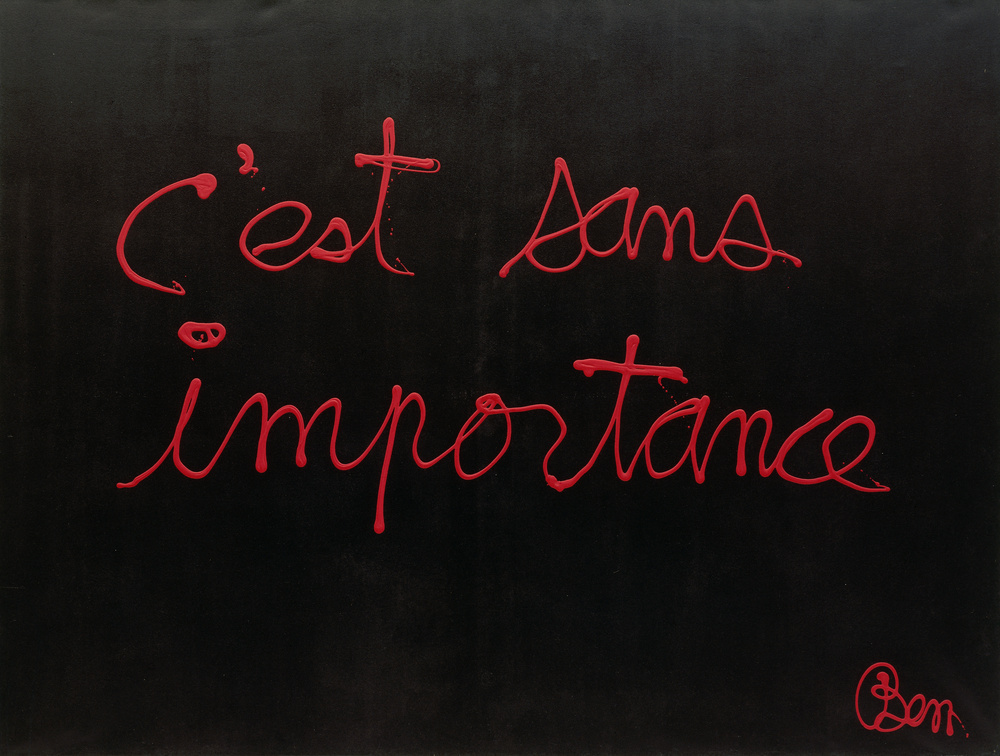 c'est sans
importance
Ben